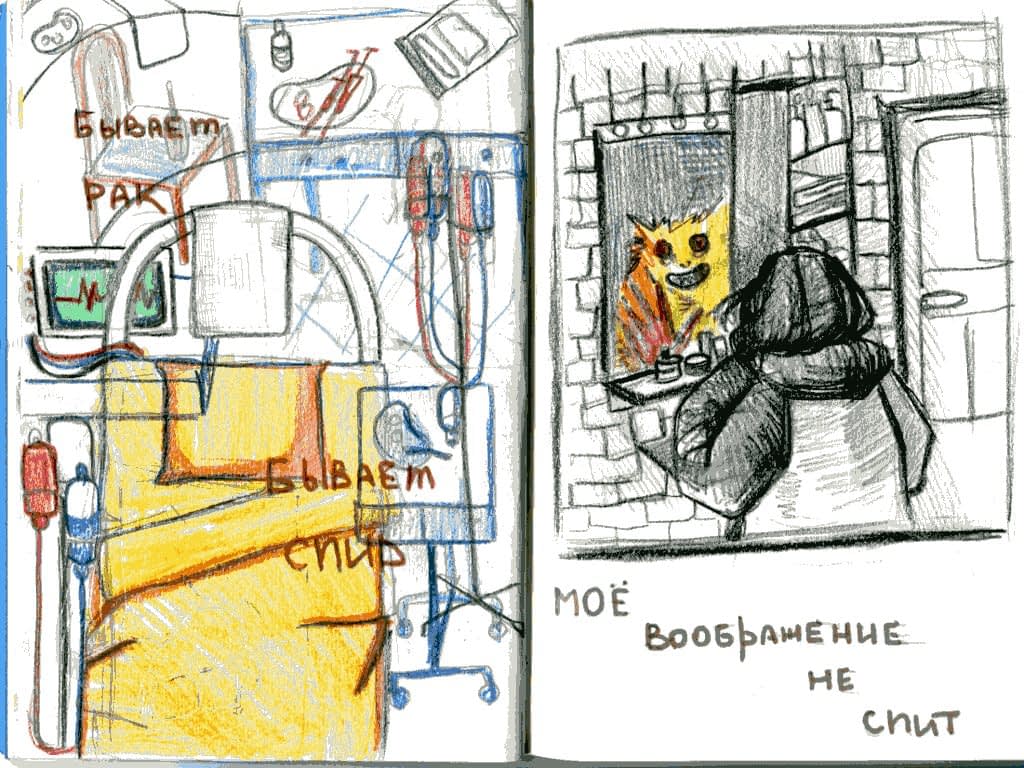 БЫВАЕТ
РАК
БЫВАЕТ
СПИД
МОЁ
ВООБРАЖЕНИЕ
НЕ
СПИТ